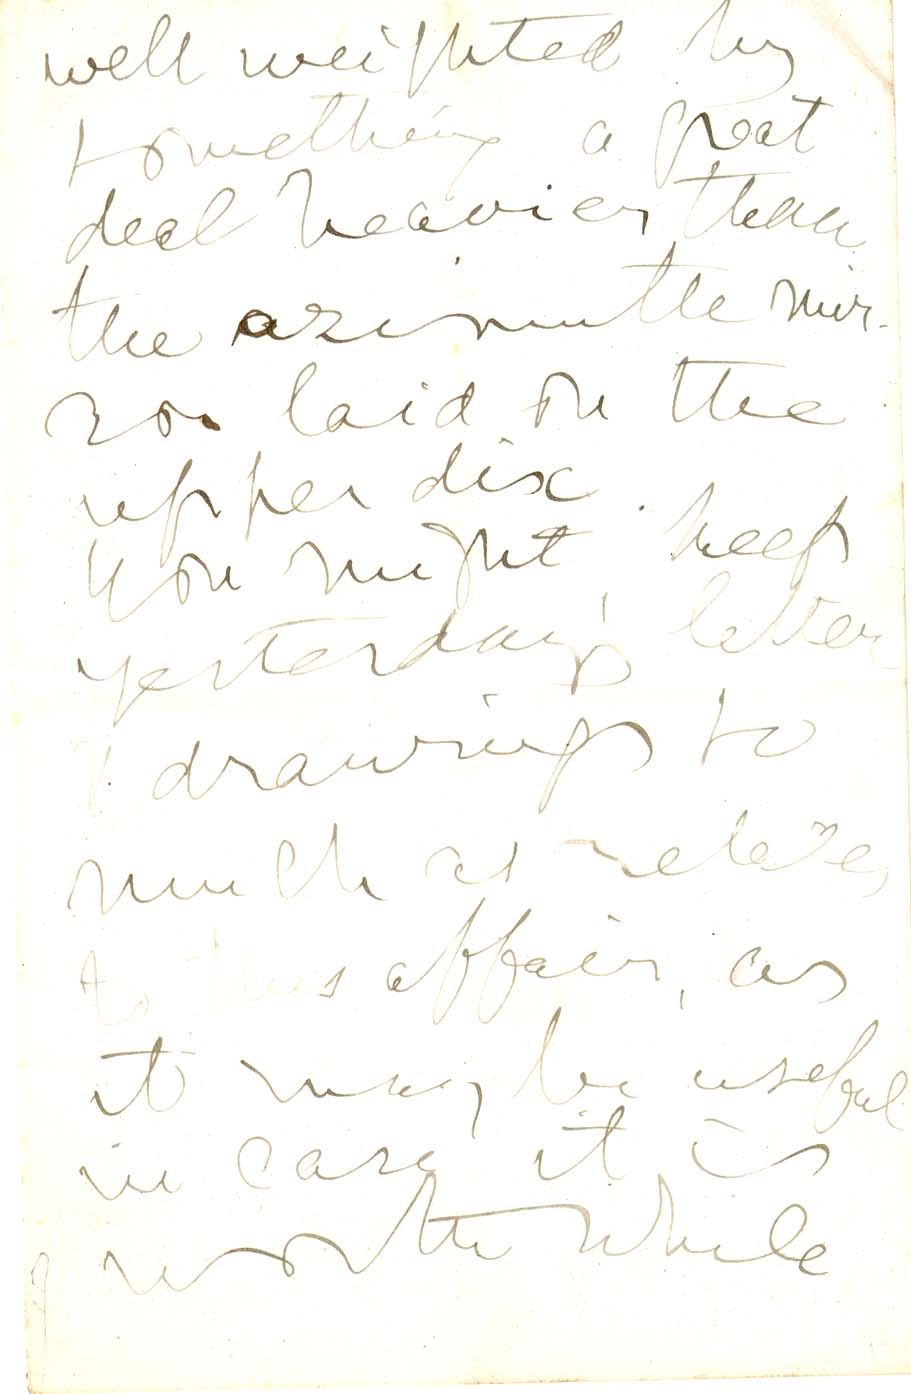 well weighted by
something a great
deal heavier than
the azimuth mir-
ror laid on the
upper disc.
You might keep
yesterday's letter
& drawings so
much as relates
to this affair, as
it may be useful
in case it is
worth while